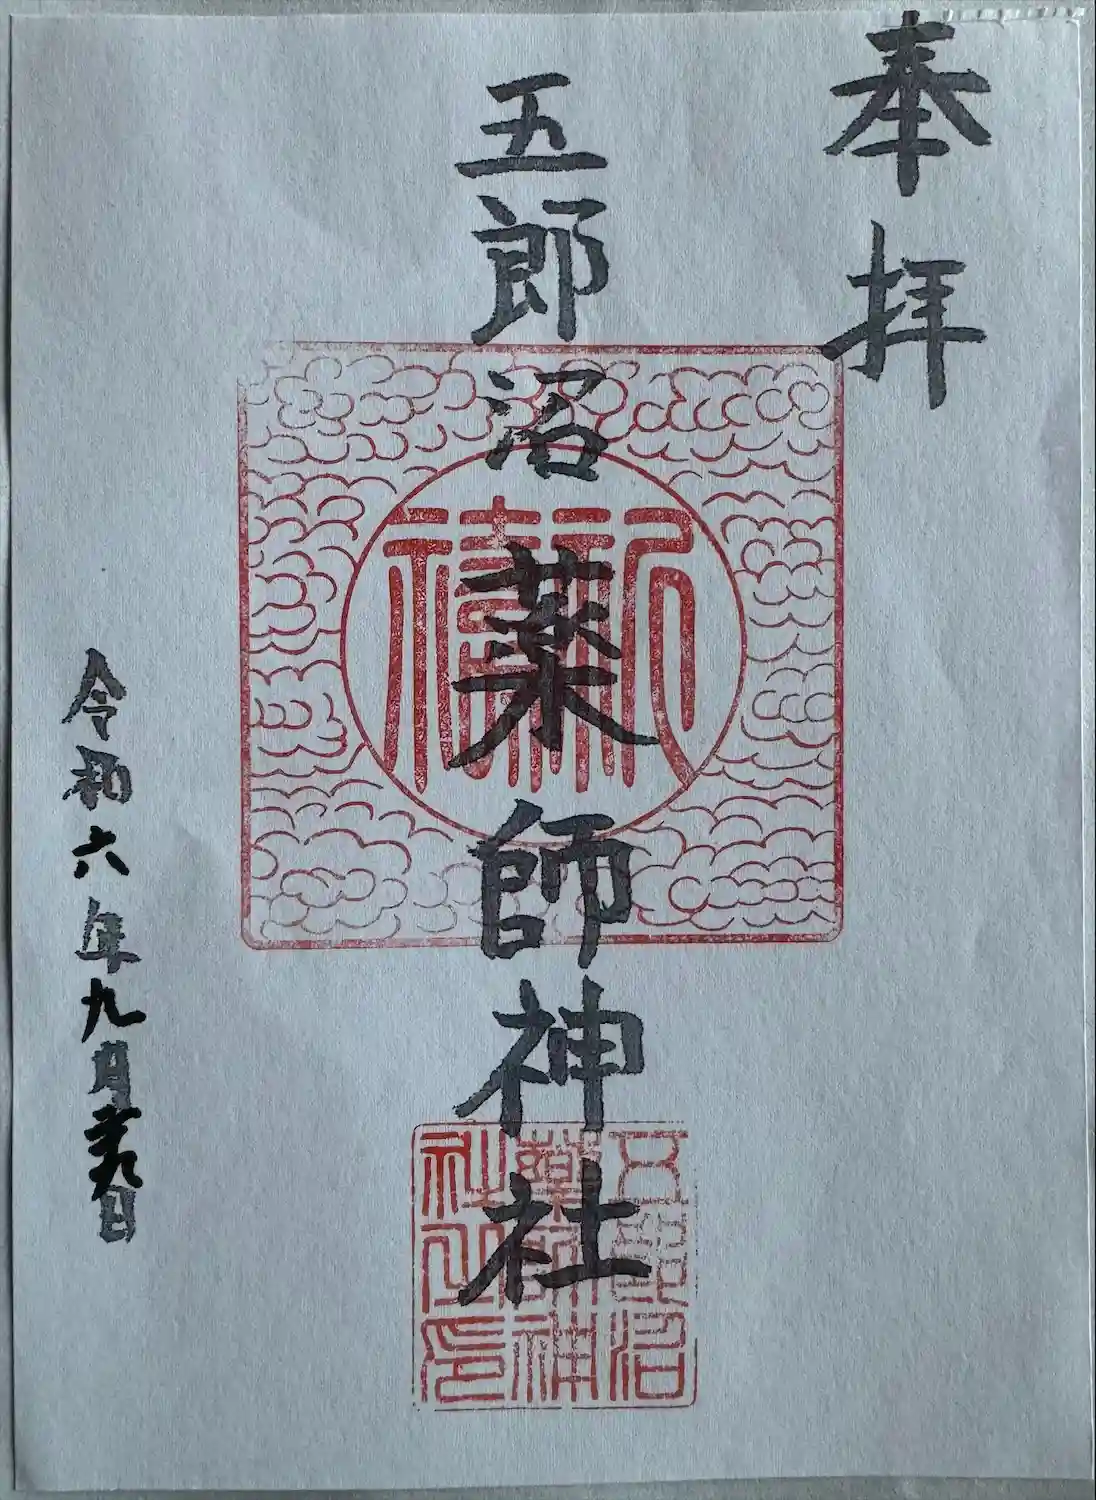 奉拝
五郎沼薬師神社
五郎沼薬師神社之印
令和六年九月
日